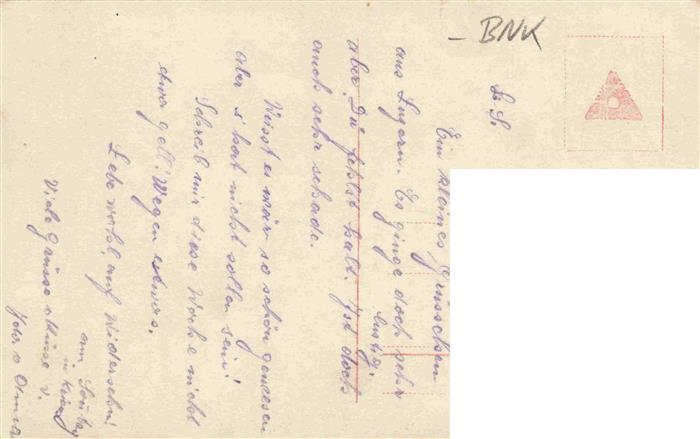 BNK
L. S.
Ein kleines Grüsschen
aus Luzern. Es ginge doch sehr
lustig,
aber Du fehlst halt. Ist doch
auch sehr schade.
Weist es wär so schön gewesen
aber s'hat nicht sollen sein!
Schreib mir diese Woche nicht
etwa gell! Wegen etwas.
Lebe wohl, auf Wiedersehn!
am
in
Viele Grüsse